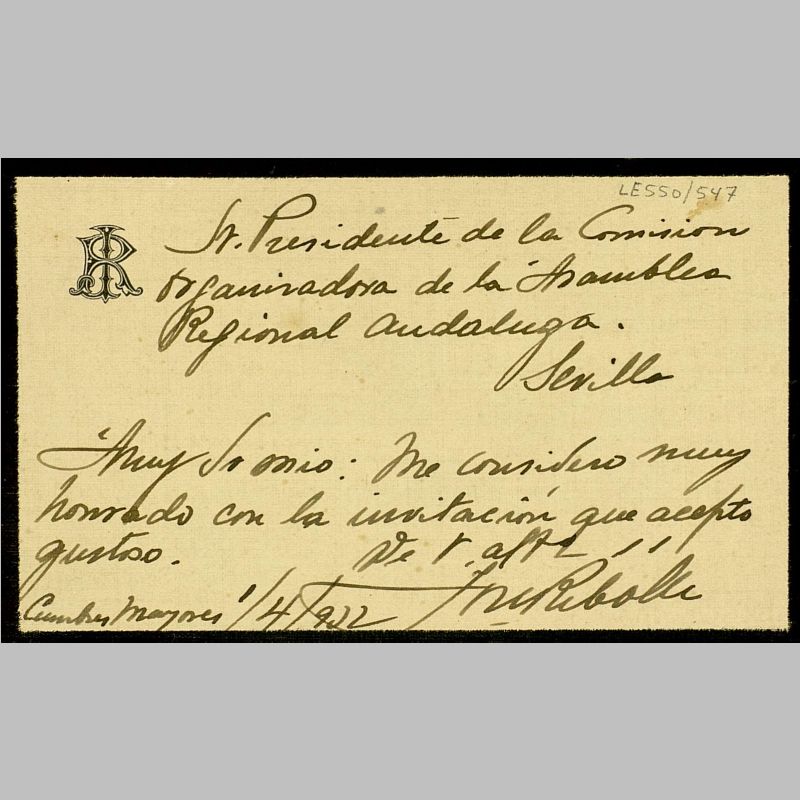 LE550/547
Sr. Presidente de la Comision
organizadora de la Asamblea
Regional Andaluza.
Sevilla
Muy Sr mio: Me considero muy
honrado con la invitación que acepto
gustoso. De V. affº
Cumbres Mayores 1/4/922